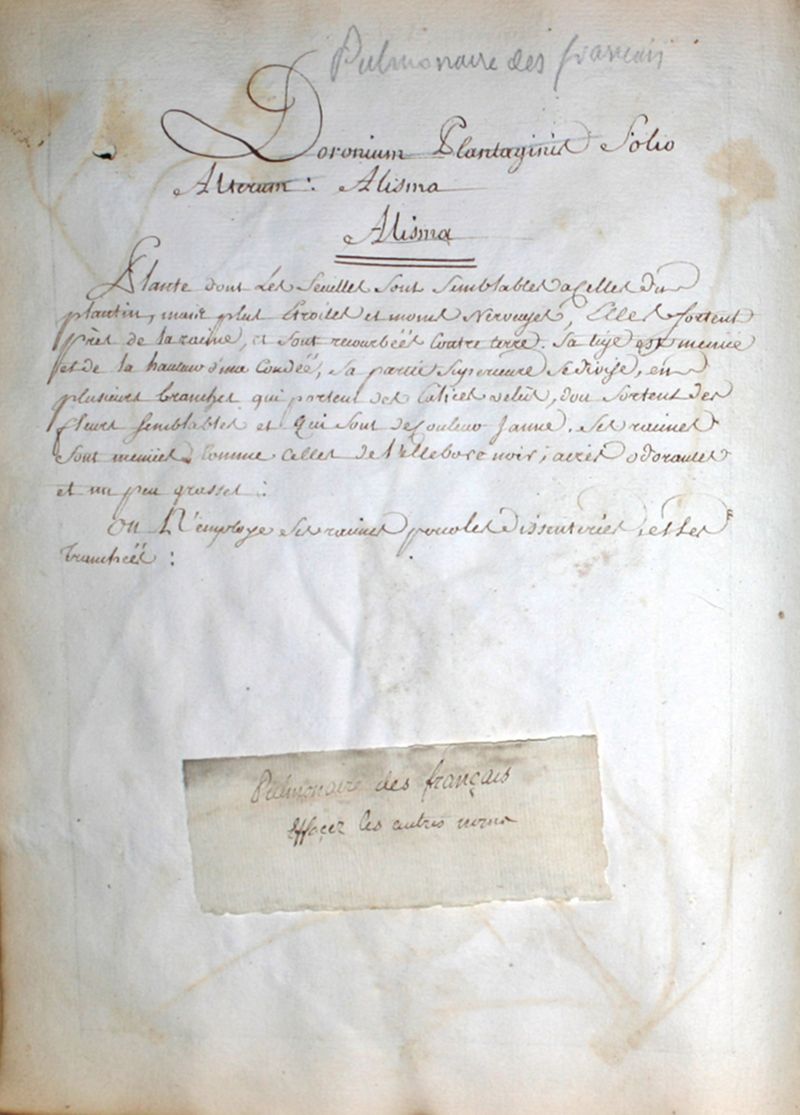 Pulmonaire des francais
Doronium Plantaginis Folio
Alterum : Alisma
Alisma
Plante dont Les feuilles sont semblables a Celles du
plantin, mais plus Etroites et moins Nerveuses, Elles sortent
près de la racine, et sont recourbéés Contre terre. Sa tige est menüe
et de la hauteur d'une Coudéé, sa partie superieure se divise, en
plusieurs branches qui portent des Calices velus, dou sortent des
fleurs semblables et qui sont de Couleur Jaune. Ses racines
sont menües Comme Celles de l'Ellebore noir ; acres odorantes
et un peu grasses :
On N'employe ses racines pour les dissenteries, et Les
Tranchéés :
Pulmonaire des français
Effacer les autres noms